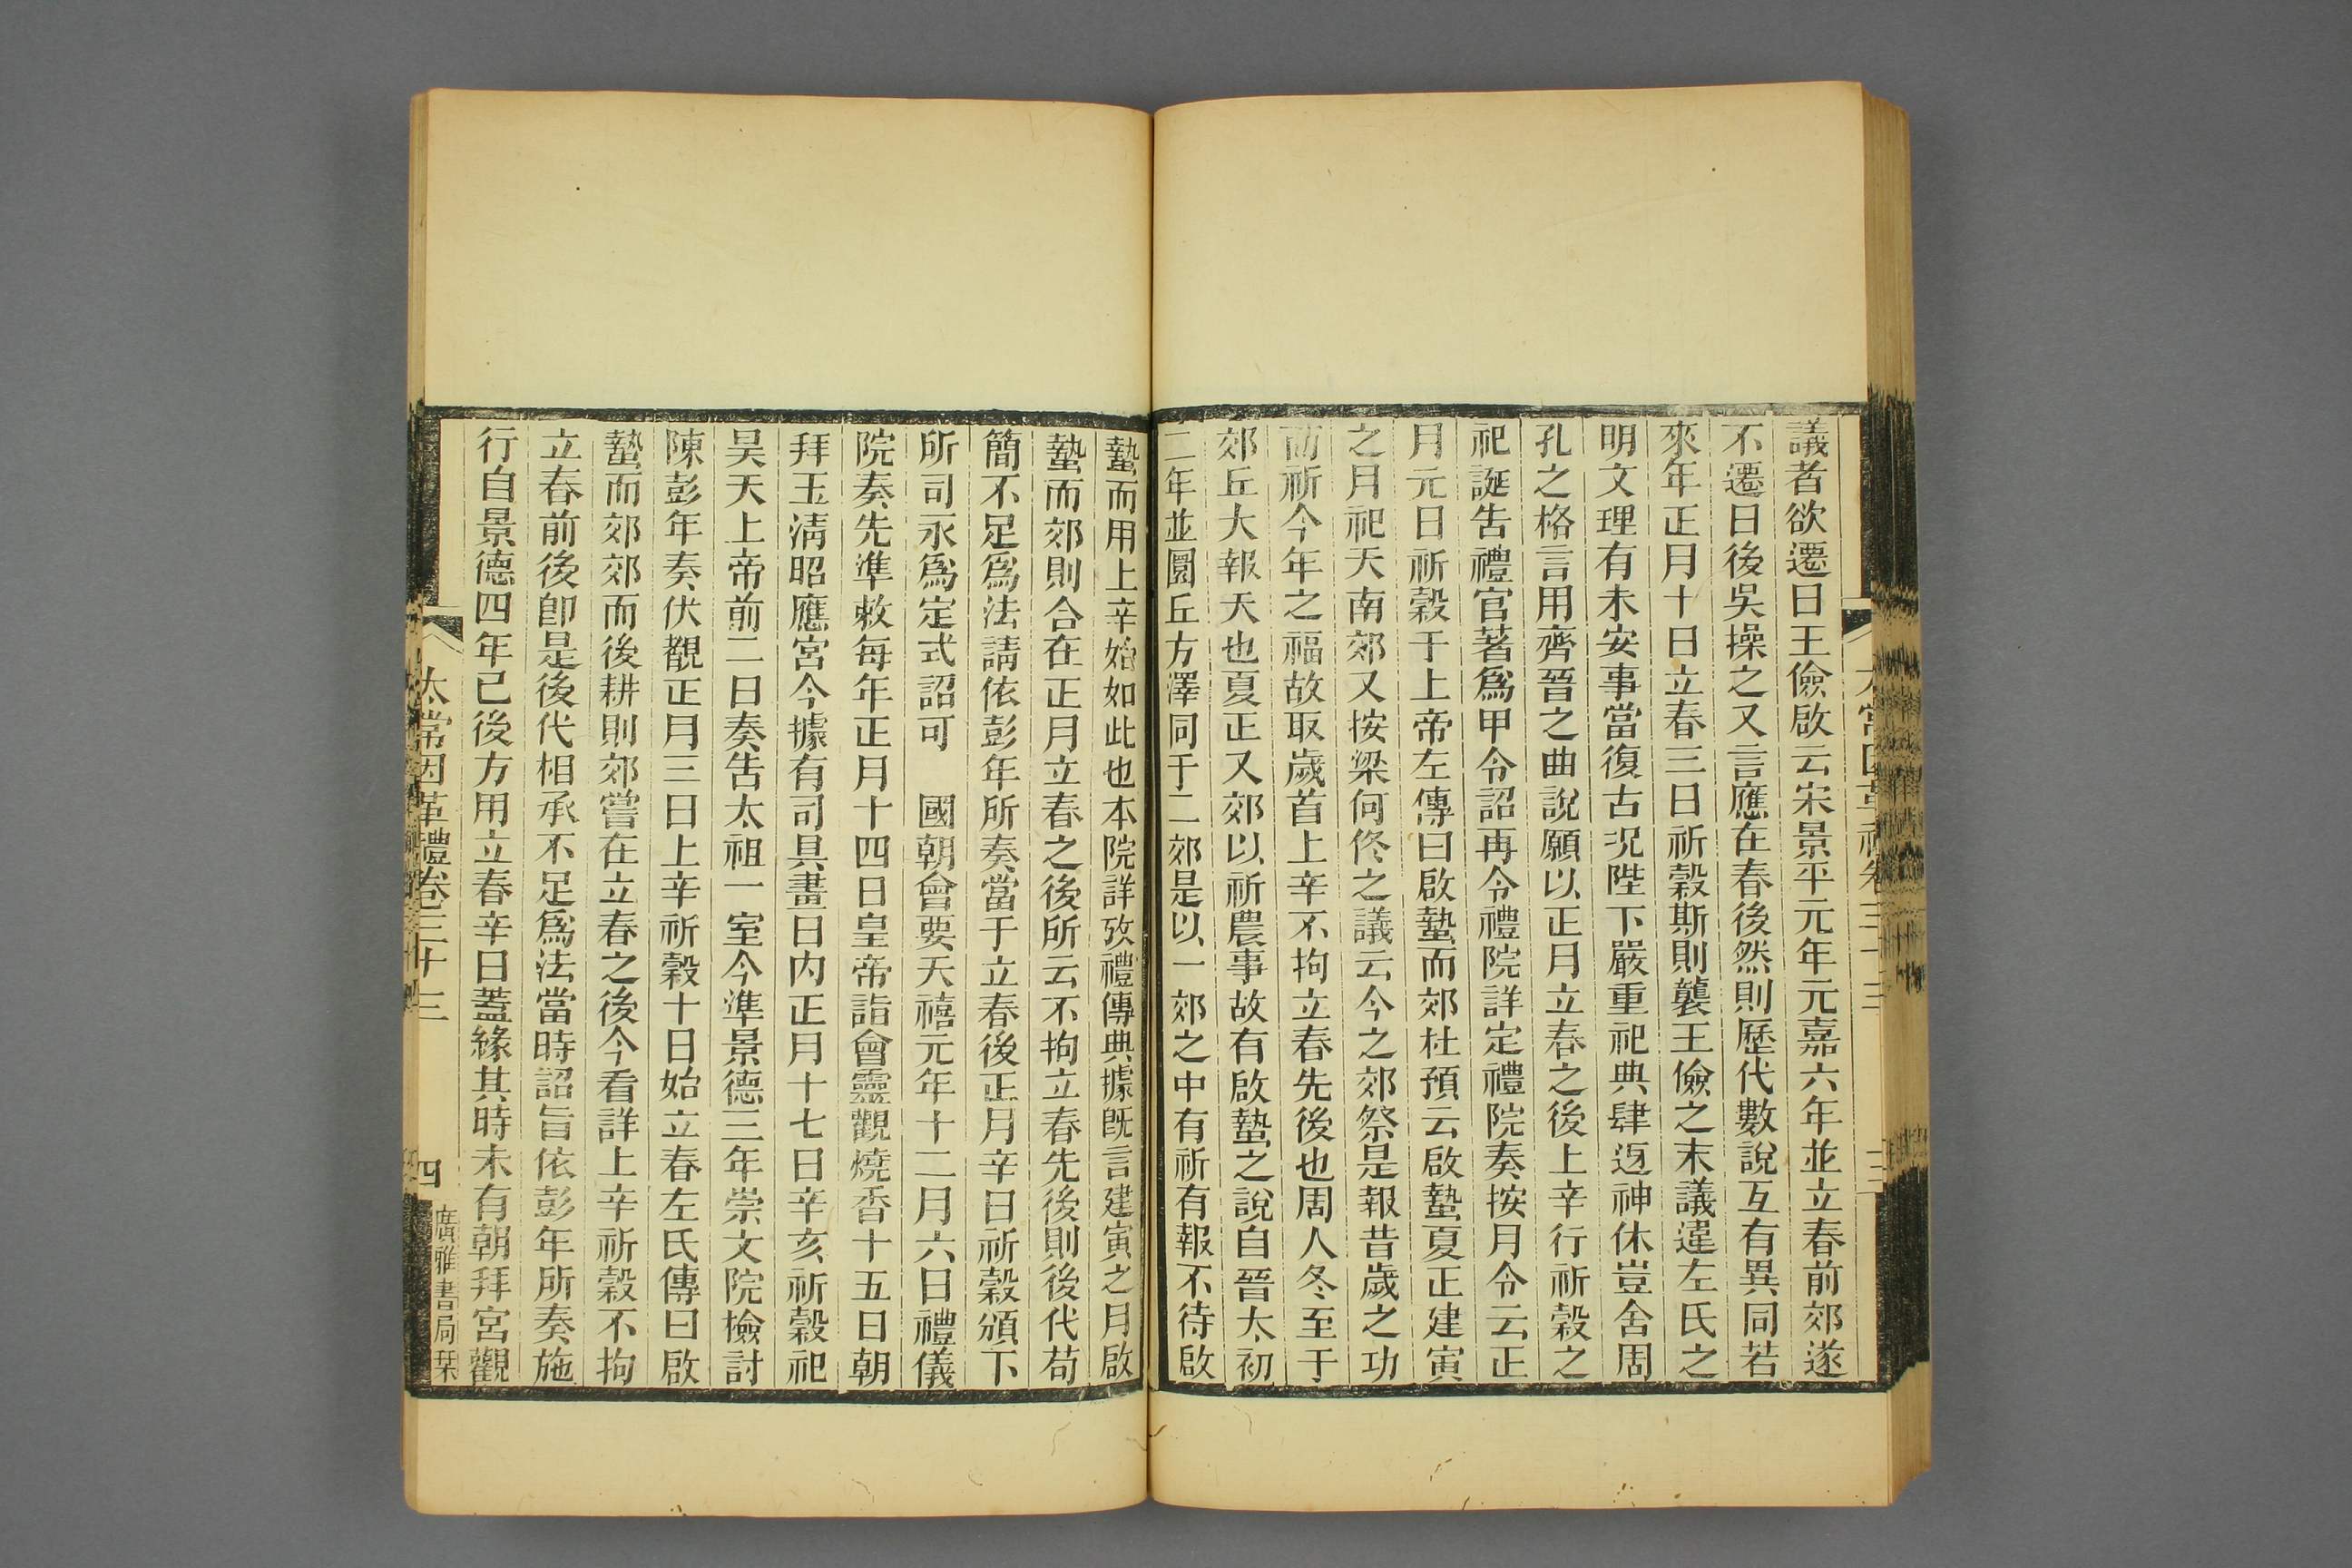 議者欲遷日王儉啟云宋景平元年元嘉六年並立春前郊遂
不遷日後吳操之又言應在春後然則歷代數說互有異同若
來年正月十日立春三日祈穀斯則襲王儉之末議違左氏之
明文理有未安事當復古況陛下嚴重祀典肆迓神休豈舍周
孔之格言用齊晉之曲說願以正月立春之後上辛行祈穀之
祀誕告禮官著爲甲令詔再令禮院詳定禮院奏按月令云正
月元日祈穀于上帝左傳曰啟蟄而郊杜預云啟蟄夏正建寅
之月祀天南郊又按梁何佟之議云今之郊祭是報昔歲之功
而祈今年之福故取歲首上辛不拘立春先後也周人冬至于
郊丘大報天也夏正又郊以祈農事故有啟蟄之說自晉太初
二年並圜丘方澤同于二郊是以一郊之中有祈有報不待啟
蟄而用上辛始如此也本院詳攷禮傳典據既言建寅之月啟
蟄而郊則合在正月立春之後所云不拘立春先後則後代苟
簡不足爲法請依彭年所奏當于立春後正月辛日祈穀頒下
所司永爲定式詔可　國朝會要天禧元年十二月六日禮儀
院奏先準敕每年正月十四日皇帝詣會靈觀燒香十五日朝
拜玉淸昭應宮今據有司具畫日內正月十七日辛亥祈穀祀
昊天上帝前二日奏告太祖一室今準景德三年崇文院檢討
陳彭年奏伏覩正月三日上辛祈穀十日始立春左氏傳曰啟
蟄而郊郊而後耕則郊嘗在立春之後今看詳上辛祈穀不拘
立春前後卽是後代相承不足爲法當時詔旨依彭年所奏施
行自景德四年已後方用立春辛日蓋緣其時未有朝拜宮觀
太常因革禮卷三十三
四
廣雅書局栞